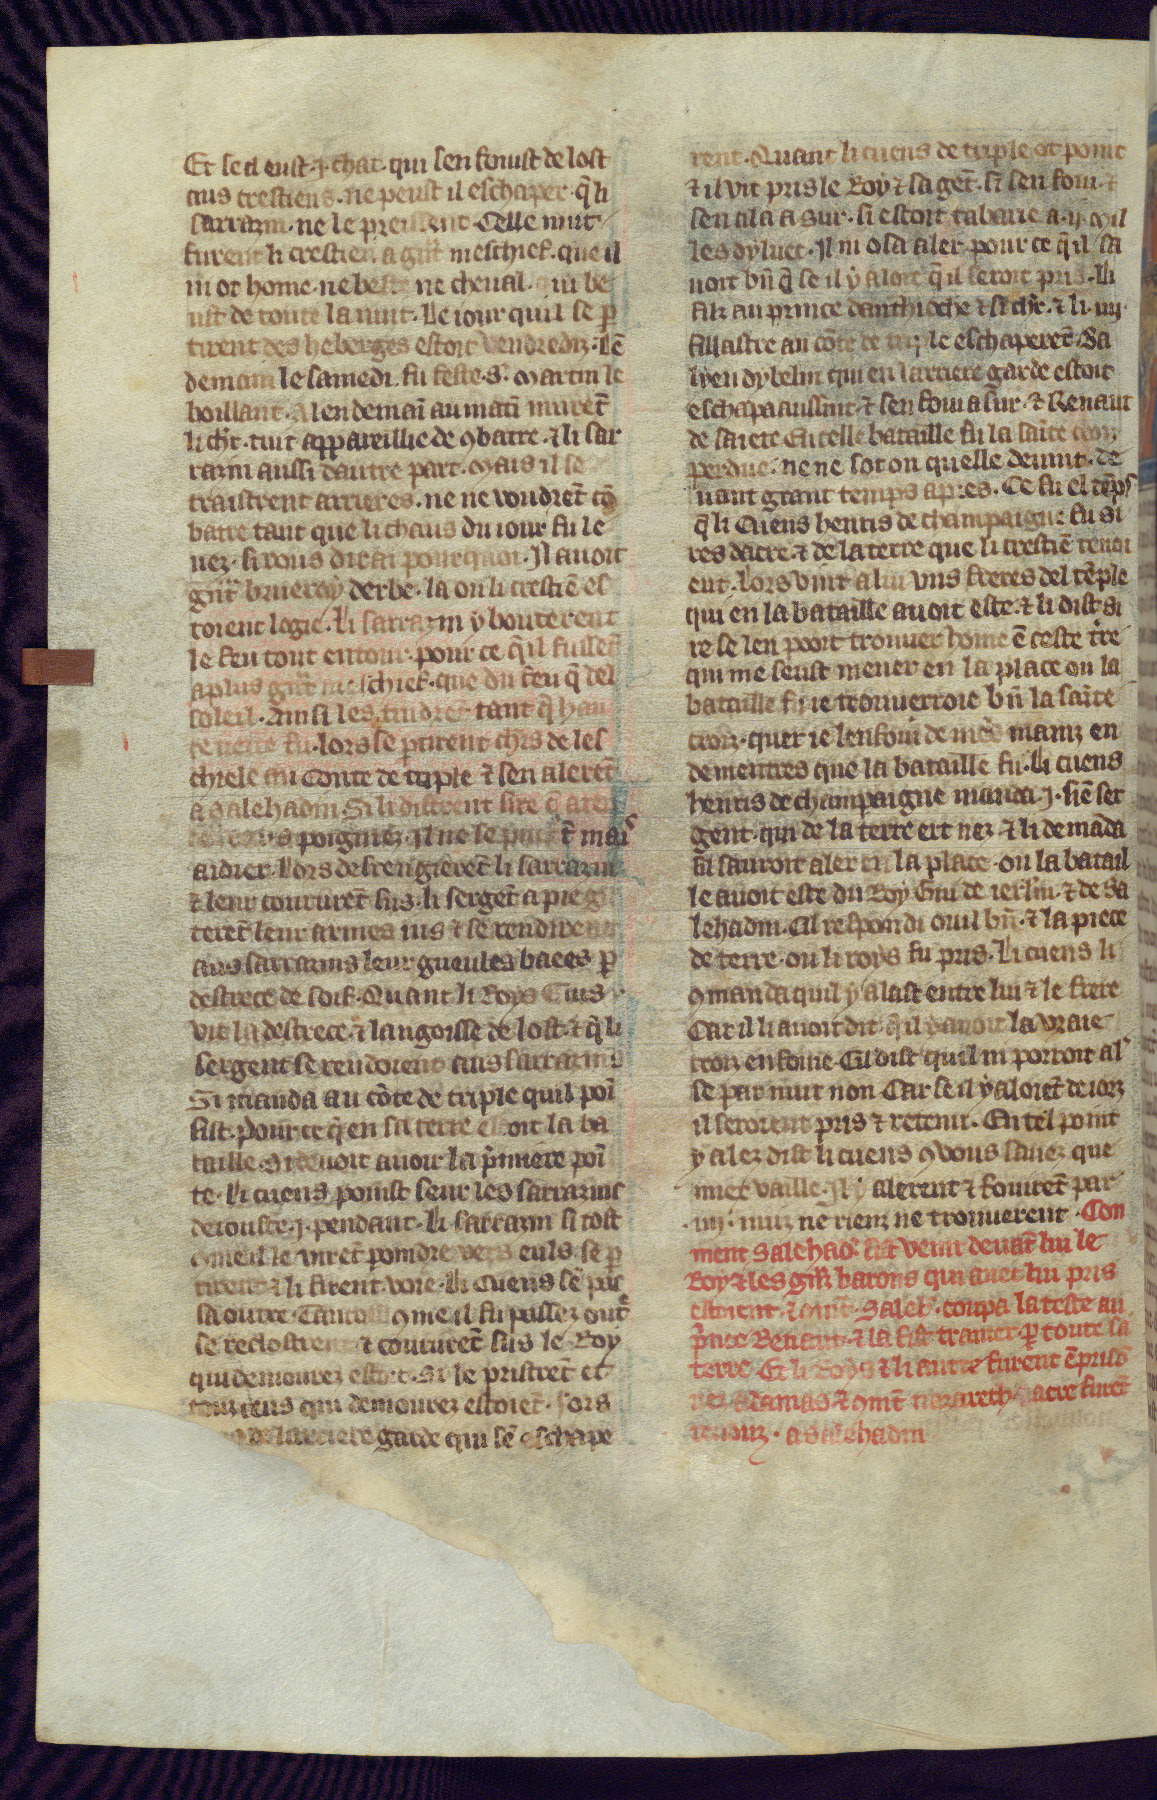 Et se il eust .j. chat. qui sen fouist de lost
aus crestiens. ne peust il eschaper. q̃ li
sarrazin. ne le preissent. Celle nuit
furent li crestien a gñt meschief. que il
ni ot home. ne beste ne cheual. qui be
ust de toute la nuit. Le iour quil se p̲
tirent des heberges estoit vendredi. Lẽ
demain le samedi. fu feste .S. martin le
boillant. A lendemaĩ au matĩ murẽt
li chr̃. tuit appareillie de ꝯbatre. ⁊ li sar
razin aussi dautre part. Mais il se
traistrent arrieres. ne ne voudrẽt cõ
batre tant que li chaus du iour fu le
uez. si vous dirai pourquoi. Il auoit
gñt bruerey derbe. la ou li crestiẽ es
toient logie. Li sarrazin y bouterent
le feu tout entour. pour ce q̃ il fussẽt
a plus gñt meschief. que du feu q̃ del
soleil. Ainsi les tindrẽt tant q̃ hau
te tierce fu. lors se ptirent chr̃s de les
chiele au Conte de triple ⁊ sen alerẽt
a salehadin. Si li distrent sire q̃ atẽ
vos poigniez. Il ne se pueẽt mais
aidier. Lors desrengierẽt li sarrazin
⁊ leur coururẽt sus. li sergẽt a pie gi
terẽt leur armes ius ⁊ se rendirent
aus sarrazins leur gueules baees p̲
destrece de soif. Quant li Roys Guis
vit la destrece. ⁊ langoisse de lost. ⁊ q̃ li
sergent se rendoient aus sarrazins
Si manda au cõte de triple quil poĩ
sist. pour ce q̃ en sa terre estoit la ba
taille. si deuoit auoir la p̃miere poĩ
te. Li cuens poinst seur les sarrazins
deiouste .j. pendant. Li sarrazin si tost
ꝯme il le virẽt poindre vers euls. se p̲
tirent ⁊ li firent voie. Li Cuens sẽ pas
sa outre. Tantost ꝯme il fu passez outˀ
se reclostrent ⁊ coururẽt sus le Roy
qui demourez estoit. Si le pristrẽt et
touz ceus qui demourez estoiẽt. fors
de larriere garde qui sẽ eschape
rent. Quant li cuens de triple ot point
⁊ il vit pris le Roy ⁊ sa gẽt. si sen foui. ⁊
sen ala a sur. si estoit tabarie a .ij. mil
les dyluec. Il ni osa aler pour ce q̃ il sa
uoit bñ q̃ se il y aloit q̃ il seroit pris. Li
filz au prince danthioche ⁊ si chr̃. ⁊ li .iiij.
fillastre au cõte de triple eschaperẽt. Ba
lyen dybelin qui en larriere garde estoit
eschapa aussint. ⁊ sen foui a sur. ⁊ Renaut
de saiete. En celle bataille fu la saĩte croiz
perdue. ne ne sot on quelle deuint. de
uant grant temps apres. Ce fu el tẽps
q̃ li Cuens henris de champaigne fu si
res dacre. ⁊ de la terre que li crestiẽ tenoi
ent. Lors vint a lui vns freres del tẽple
qui en la bataille auoit este. ⁊ li dist. Si
re se len poot trouuer home ẽ ceste tr̃e
qui me seust mener en la place ou la
bataille fu. ie trouuerroie bñ la saĩte
croiz. quer ie lenfoui de mes mainz en
dementres que la bataille fu. Li cuens
henris de champaigne manda .j. siẽ ser
gent. qui de la terre ert nez. ⁊ li demãda
sil sauroit aler en la place. ou la batail
le auoit este du Roy Gui de ierl̃m. ⁊ de sa
lehadin. Cil respondi ouil bñ. ⁊ la piece
de terre. ou li roys fu pris. Li cuens li
ꝯmanda quil y alast entre lui ⁊ le frere
Car il li auoit dit. q̃ il y auoit la vraie
croiz enfouie. Cil dist quil ni porroit al̓
se par nuit non. Car se il y aloiẽt de iorz
il seroient pris ⁊ retenu. En tel point
y alez dist li cuens ꝯ vous sauez que
miet vaille. Il y alerent ⁊ fouirẽt par
.iij. nuiz ne rienz ne trouuerent. Con
ment Salehad̓. fist venir deuãt lui le
Roy ⁊ les gñz barons qui auec lui pris
estoient. ⁊ ꝯmẽt. Saleh̓. coupa la teste au
p̃nce Renaut. ⁊ la fist trainer p̲ toute sa
terre. Et li Roys ⁊ li autre furent ẽprisõ
nez a damas ⁊ ꝯmẽt nazareth ⁊ acre furẽt
renduz. a salehadin